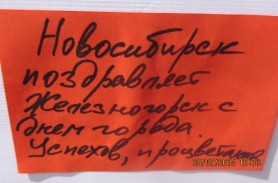 Новосибирск
поздравляет
Железногорск с
днем города.
Успехов, процветания